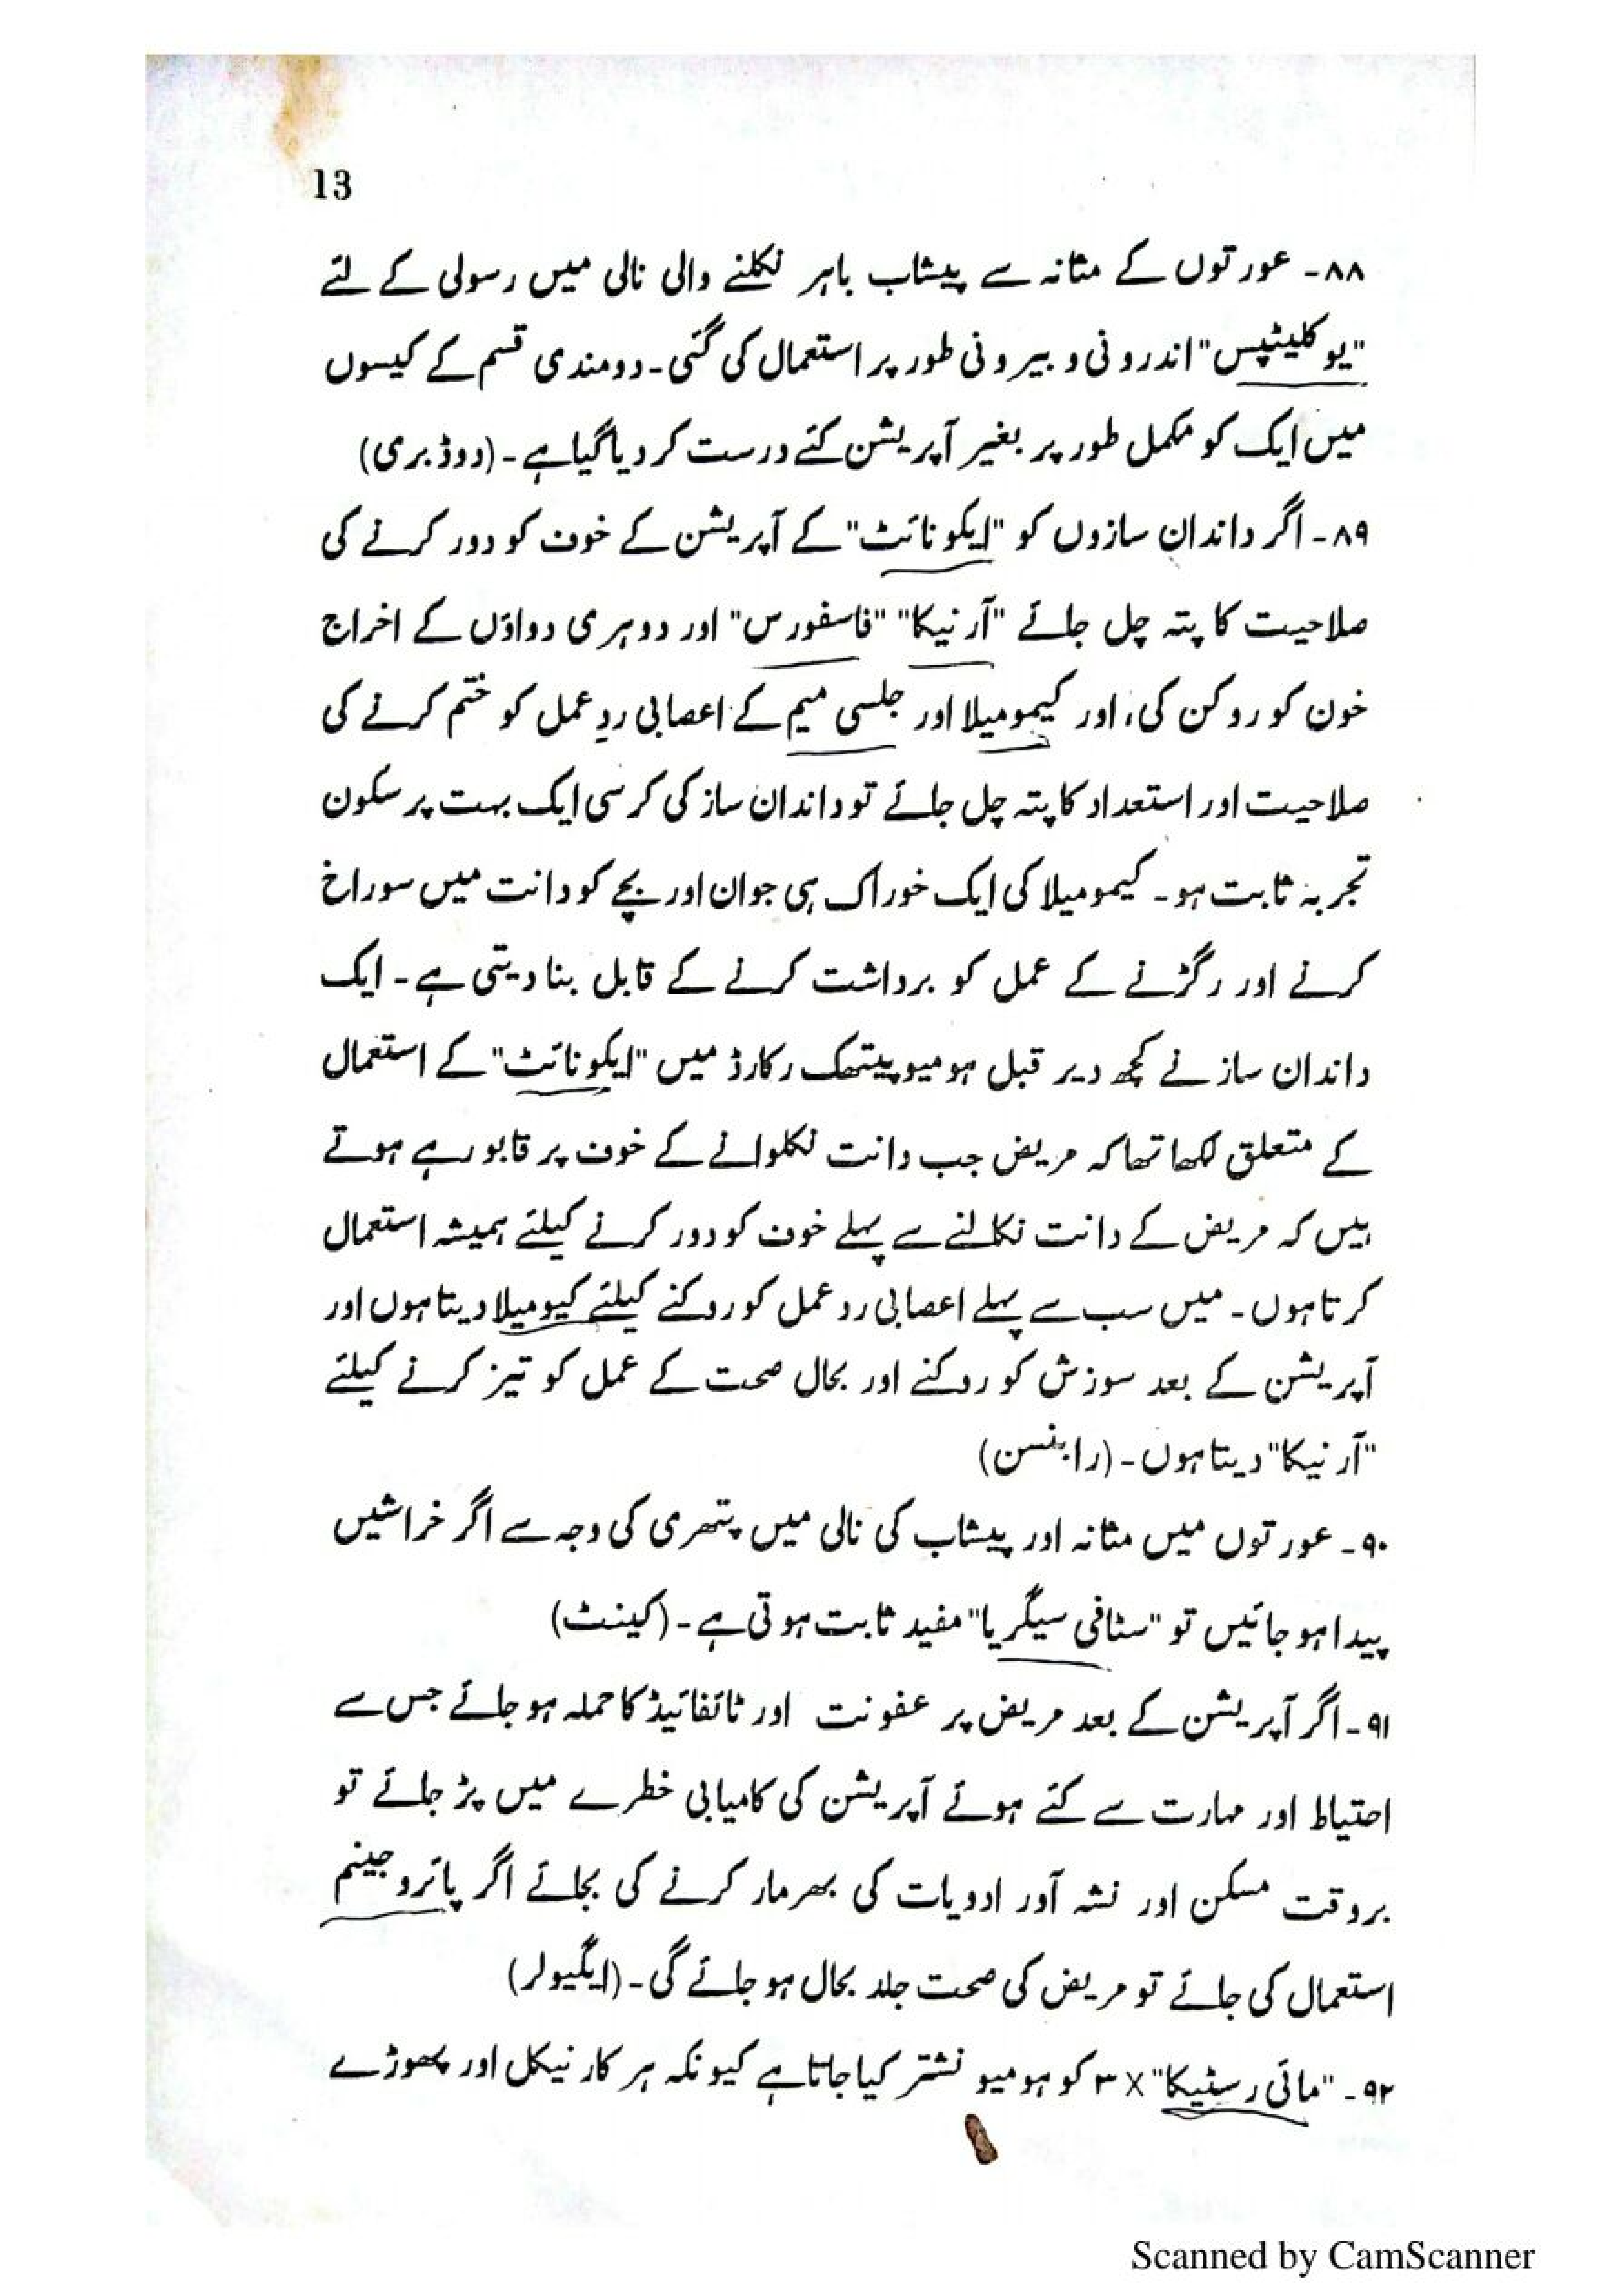 13
۸۸۔ عورتوں کے مثانہ سے پیشاب باہر نکلنے والی نالی میں رسولی کے لئے
"یوکلیپٹس" اندرونی و بیرونی طور پر استعمال کی گئی۔ دو مندی قسم کے کیسوں
میں ایک کو مکمل طور پر بغیر آپریشن کئے درست کر دیا گیا ہے۔ (ووڈبری)
۸۹۔ اگر داندان سازوں کو "ایکونائٹ" کے آپریشن کے خوف کو دور کرنے کی
صلاحیت کا پتہ چل جائے "آرنیکا" "فاسفورس" اور دوہری دواؤں کے اخراج
خون کو روکن کی، اور کیمومیلا اور جلسی میم کے اعصابی ردِ عمل کو ختم کرنے کی
صلاحیت اور استعداد کا پتہ چل جائے تو داندان ساز کی کرسی ایک بہت پر سکون
تجربہ ثابت ہو۔ کیمومیلا کی ایک خوراک ہی جوان اور بچے کو دانت میں سوراخ
کرنے اور رگڑنے کے عمل کو برداشت کرنے کے قابل بنا دیتی ہے۔ ایک
داندان ساز نے کچھ دیر قبل ہومیوپیتھک رکارڈ میں "ایکونائٹ" کے استعمال
کے متعلق لکھا تھا کہ مریض جب دانت نکلوانے کے خوف پر قابو رہے ہوتے
ہیں کہ مریض کے دانت نکالنے سے پہلے خوف کو دور کرنے کیلئے ہمیشہ استعمال
کرتا ہوں۔ میں سب سے پہلے اعصابی رد عمل کو روکنے کیلئے کیومیلا دیتا ہوں اور
آپریشن کے بعد سوزش کو روکنے اور بحال صحت کے عمل کو تیز کرنے کیلئے
"آرنیکا" دیتا ہوں۔ (رابنسن)
۹۰۔ عورتوں میں مثانہ اور پیشاب کی نالی میں پتھری کی وجہ سے اگر خراشیں
پیدا ہو جائیں تو "سٹافی سیگریا" مفید ثابت ہوتی ہے۔ (کینٹ)
۹۱۔ اگر آپریشن کے بعد مریض پر عفونت اور ٹائفائیڈ کا حملہ ہو جائے جس سے
احتیاط اور مہارت سے کئے ہوئے آپریشن کی کامیابی خطرے میں پڑ جائے تو
بروقت مسکن اور نشہ آور ادویات کی بھرمار کرنے کی بجائے اگر پائروجینم
استعمال کی جائے تو مریض کی صحت جلد بحال ہو جائے گی۔ (ایگیولر)
۹۲۔ "مائی رسٹیکا" ۳x کو ہومیو نشتر کیا جاتا ہے کیونکہ ہر کار نیکل اور پھوڑے
Scanned by CamScanner